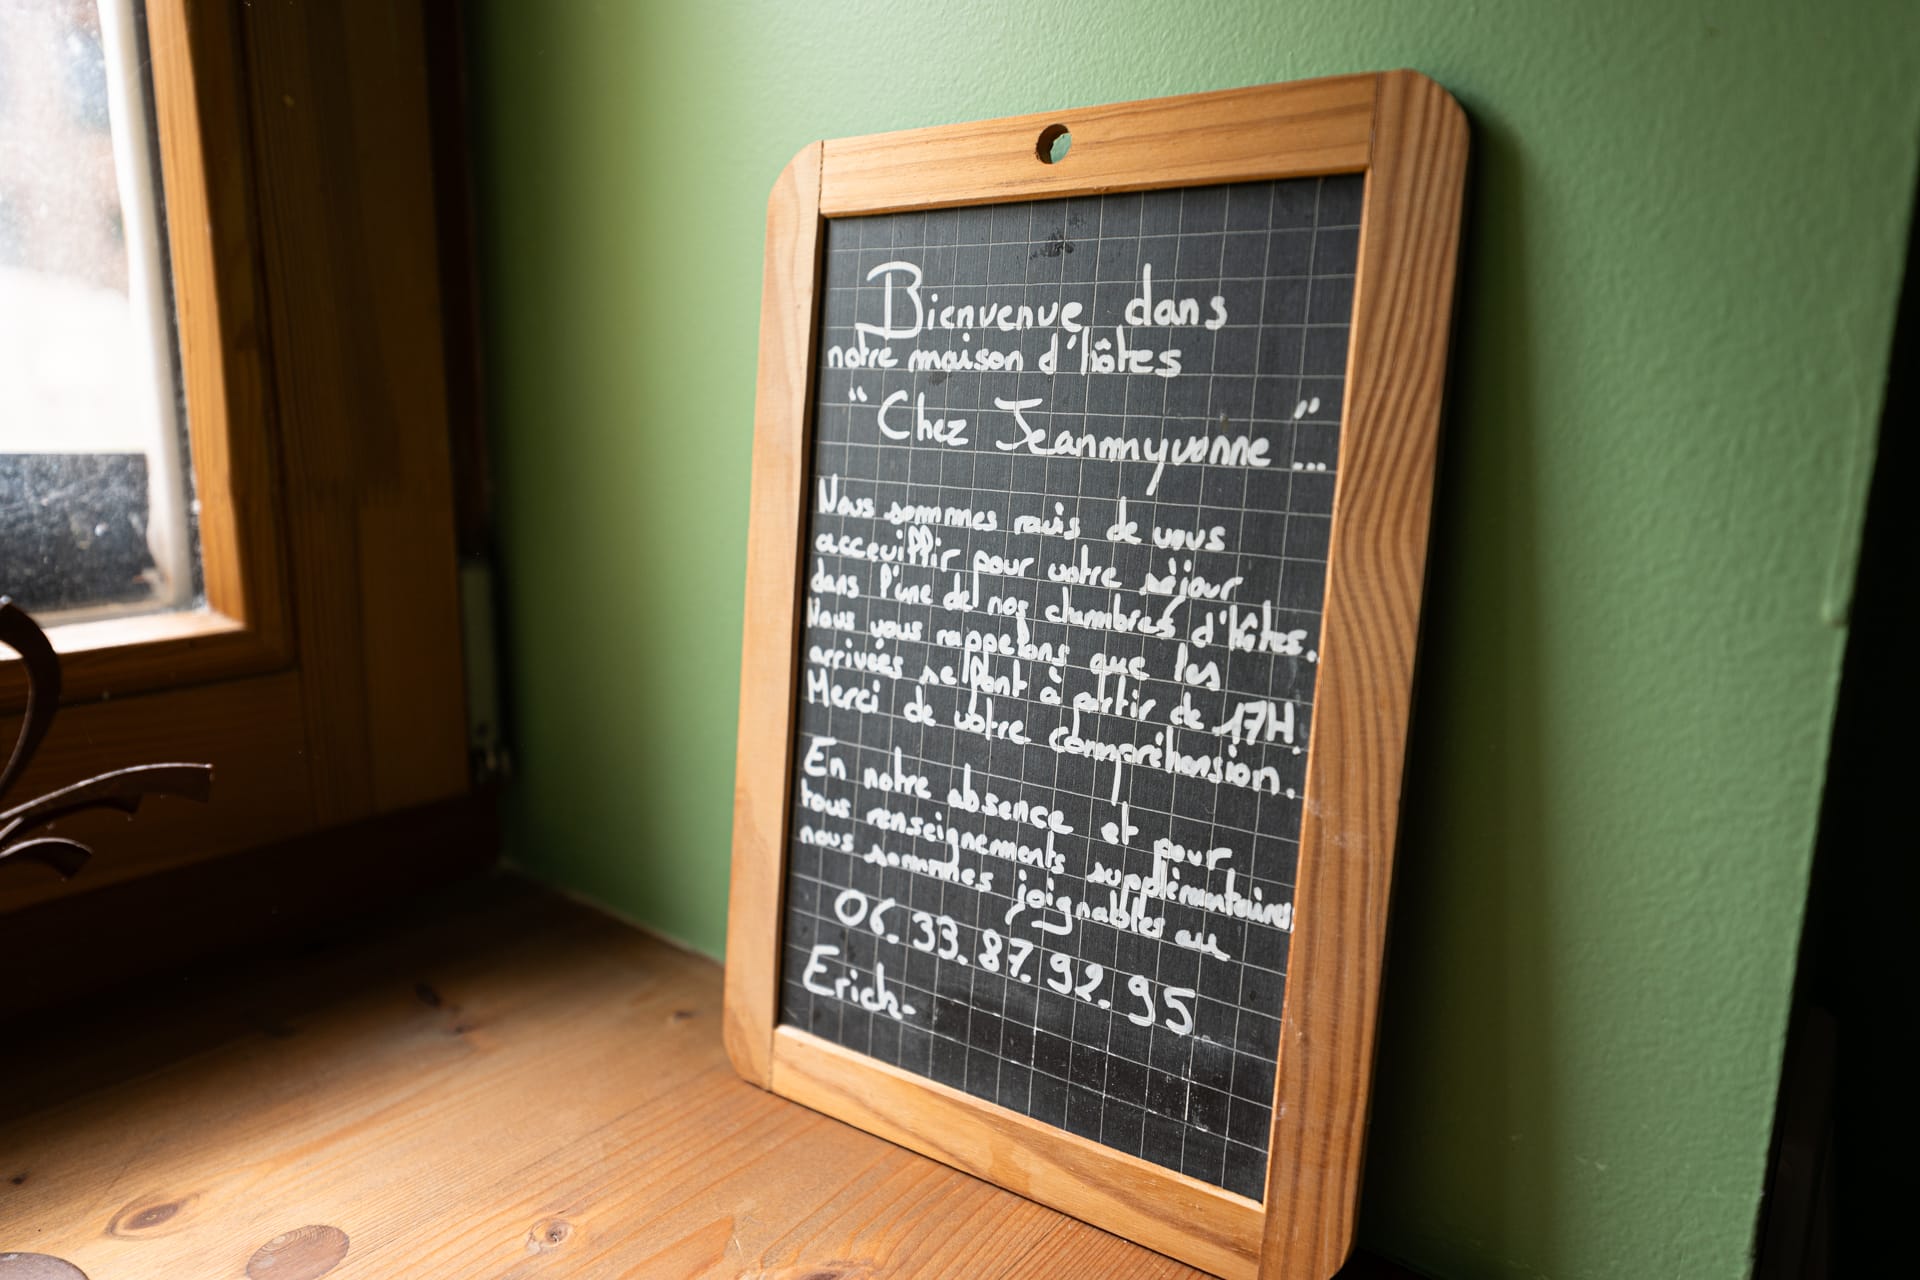 Bienvenue dans
notre maison d'hôtes
"Chez Jeanmyvonne"...
Nous sommes ravis de vous
acceuillir pour votre séjour
dans l'une de nos chambres d'hôtes.
Nous vous rappelons que les
arrivées se font à partir de 17H.
Merci de votre compréhension.
En notre absence et pour
tous renseignements supplémentaires
nous sommes joignables au
06.33.87.92.95
Erich-